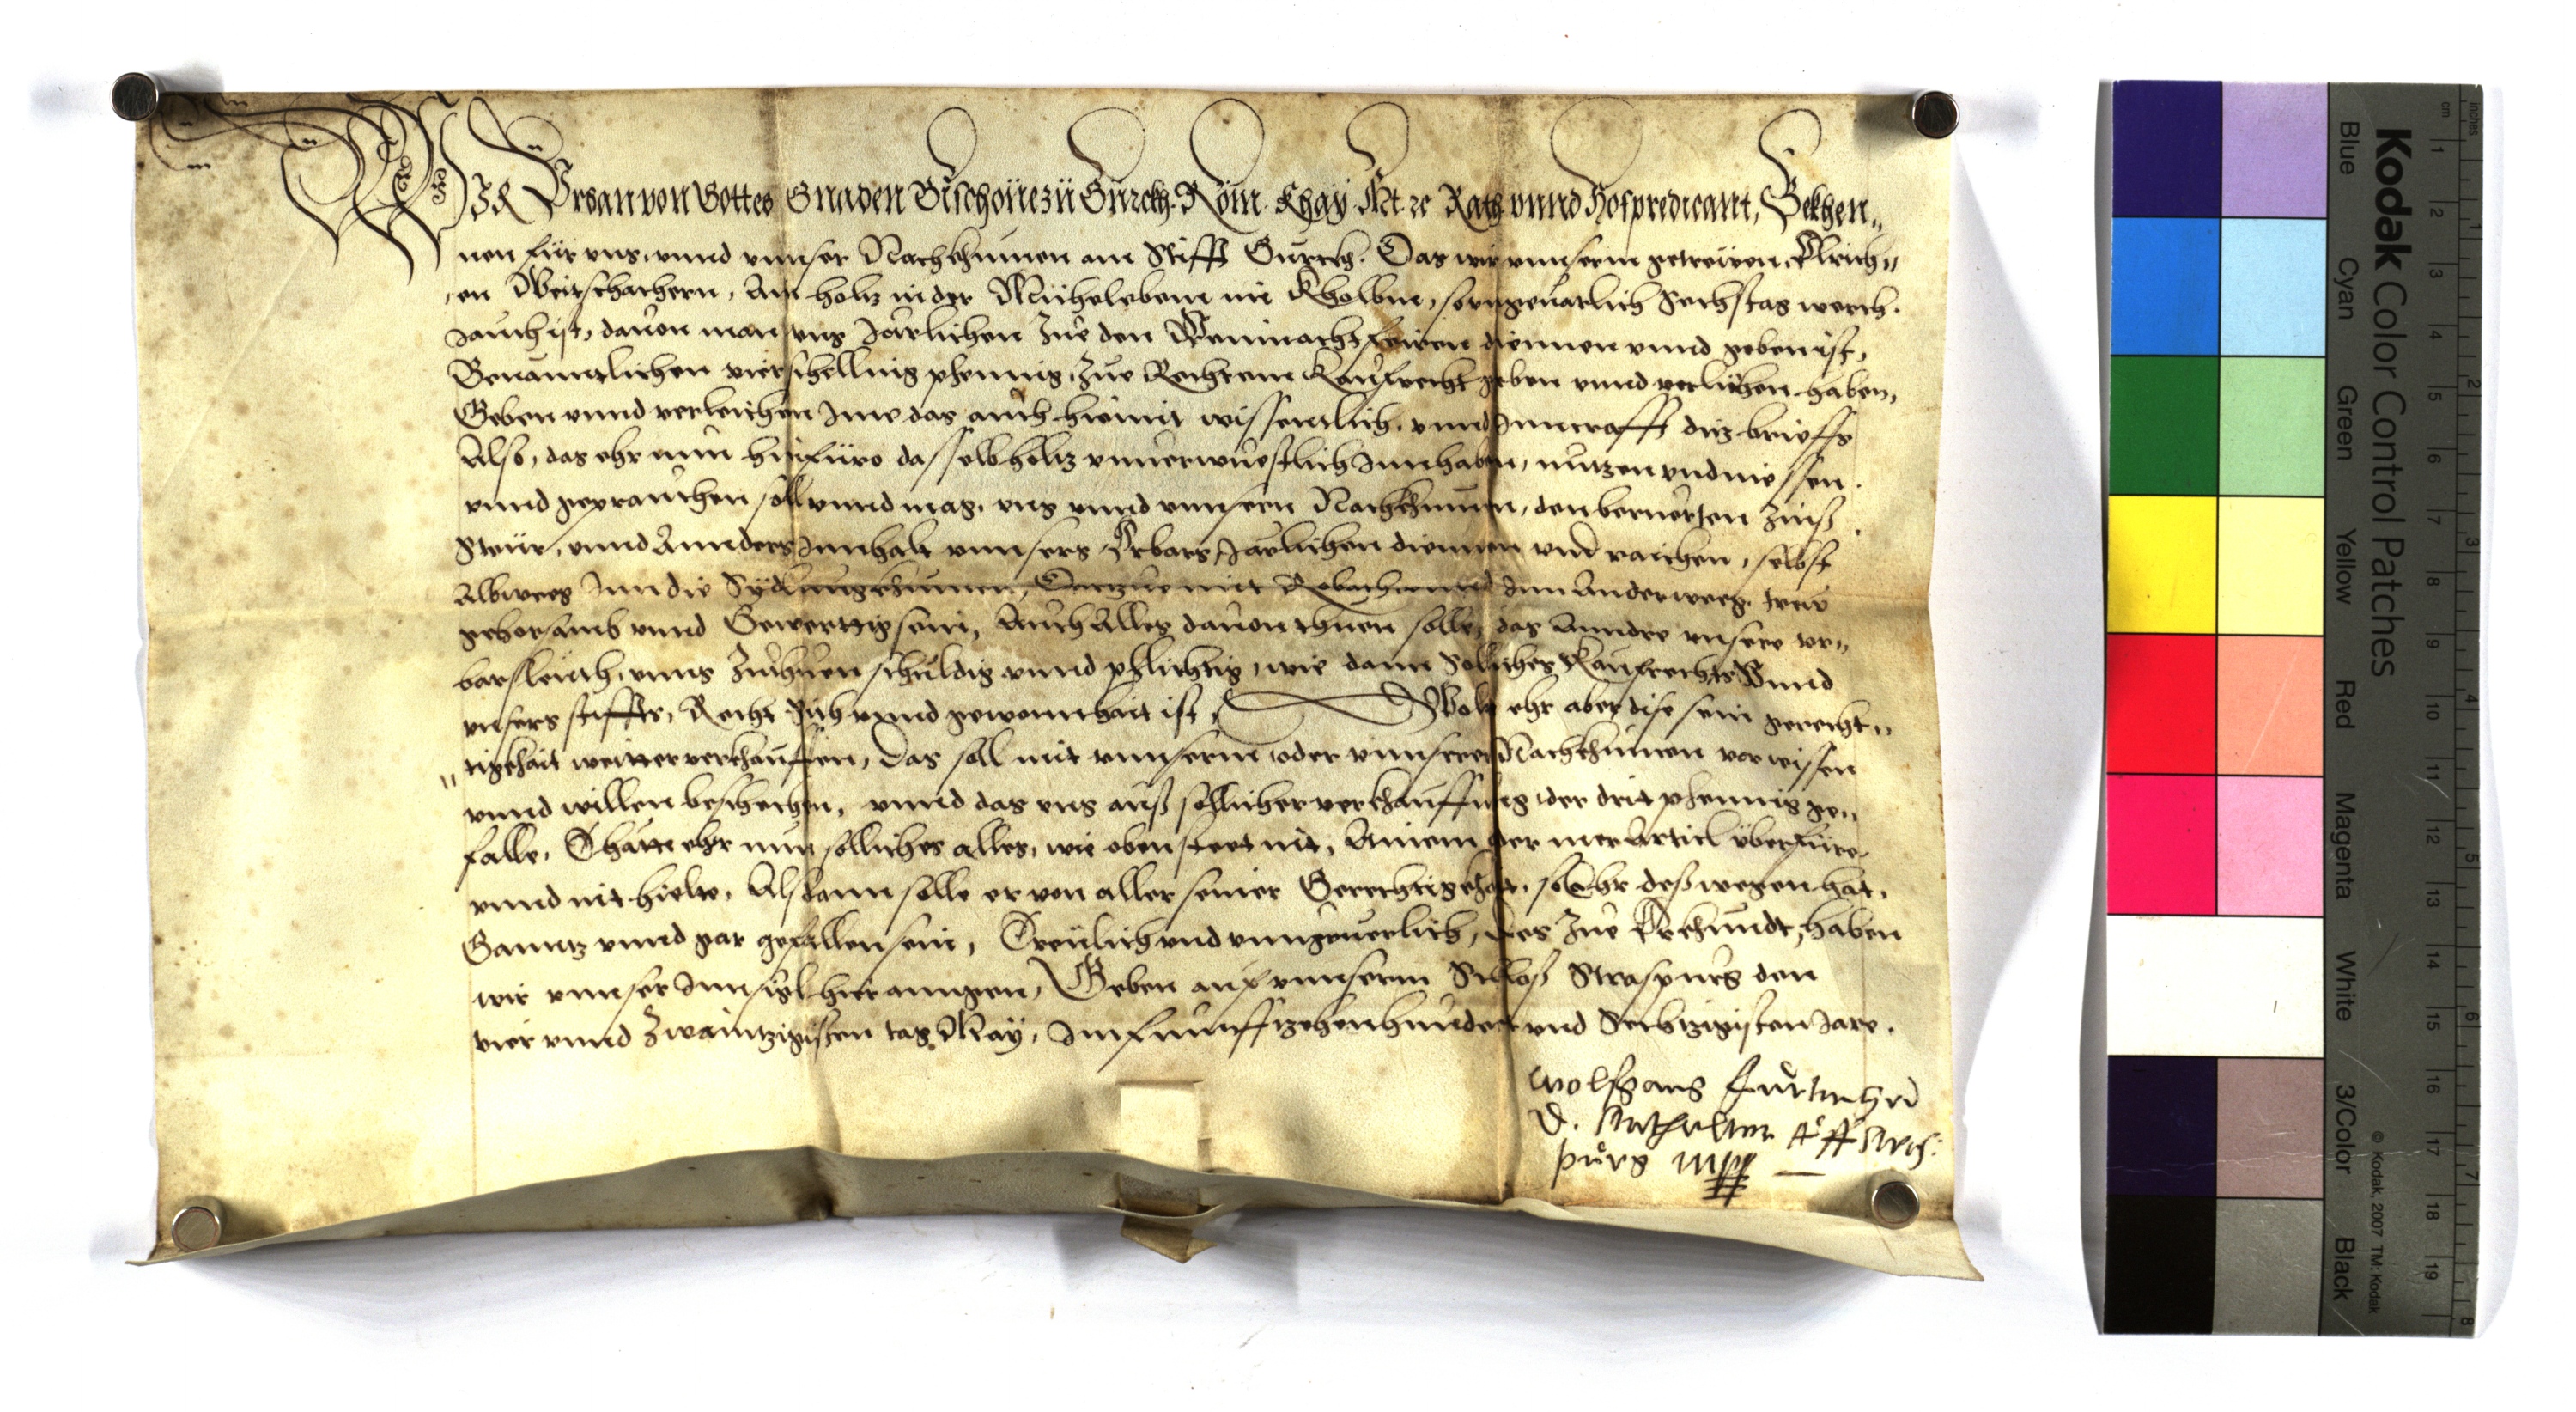 WIR Vrban von Gottes Gnaden Bischoue zü Gürckh. Röm. Khay. Mt. ꝛc Rath vnnd Hofpredicant, Bekhen„
nen für vns, vnnd vnnser Nachkhumen am Stifft Gurckh. Das wir vnnserm getreüen Vlrich„
en Weirschachern, Ain holtz in der
Jauch ist, dauon man vns Järlichen Zue den Weinnachtfeiren diennen vnnd geben ist,
Benämetlichen vier schelling pfennig, Zue Rechtem Kaufrecht geben vnnd verlichen haben,
Geben vnnd verleichen Ime das auch hiemit wissentlich, vnnd Inn crafft ditz brieffs
Also, das ehr nun hinfüro dasselb holtz vnuerwüestlich Innhaben, nutzen vnd niessen
vnnd geprauchen soll vnnd mag, vns vnnd vnnsern Nachkhumen, den beruerten Zinß
Steür, vnnd Annders Innhalt vnnsers Vrbars, Järlichen diennen vnd raichen, selbst
Albweg Inn die Stifftung khumen, Darzue mit Robath vnnd Inn Ander weeg, trew
gehorsamb vnnd Gewerttig sein, Auch Alles dauon thuen solle, das Anndre vnsere vr„
barsleüth, vnns Zuthuen schuldig vnnd pflichtig, wie dann Solliches Kaufrechts Vnnd
vnsers stiffts, Recht Sith vnnd gewonnhait ist, Wolt ehr aber dise sein gerecht„
„tigkhait weitter verkhauffen, Das soll mit vnnserm oder vnnserer Nachkhumen vorwissen
vnnd willen beschechen, vnnd das vns auß sollicher verkhauffung der drit pfennig ge„
falle, Thätte ehr nun solliches alles, wie oben steet nit, Ainem oder mer Articl überfüre
vnnd nit hielte, Alsdann solle er von aller seiner Gerechtigkhait, so Ehr deßwegen hat,
Ganntz vnnd gar gefallen sein, Treülich vnd vnngeuerlich, Des Zue Vrkhundt, haben
wir vnnser Innsigl hieranngen, Geben auf vnnserm Schloß Straspurg den
vier vnnd Zwaintzigisten tag May, Im funffzehenhundert vnd Sechtzigisten Jare.
Wolfgang
D.
purg mpp